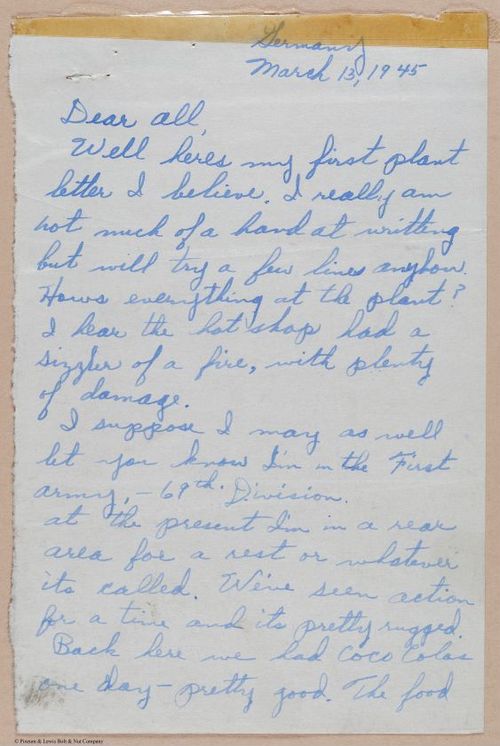 Germany
March 13, 1945
Dear all,
Well heres my first plant
letter I believe. I really am
not much of a hand at writting
but will try a few lines anyhow.
Hows everything at the plant?
I hear the hot shop had a
sizzler of a fire, with plenty
of damage.
I suppose I may as well
let you know I'm in the First
army, - 69th Division.
at the present I'm in a rear
area for a rest or whatever
its called. We've seen action
for a time and its pretty rugged.
Back here we had Coco Colas
one day - pretty good. The food
© Pioneer & Lewis Bolt & Nut Company